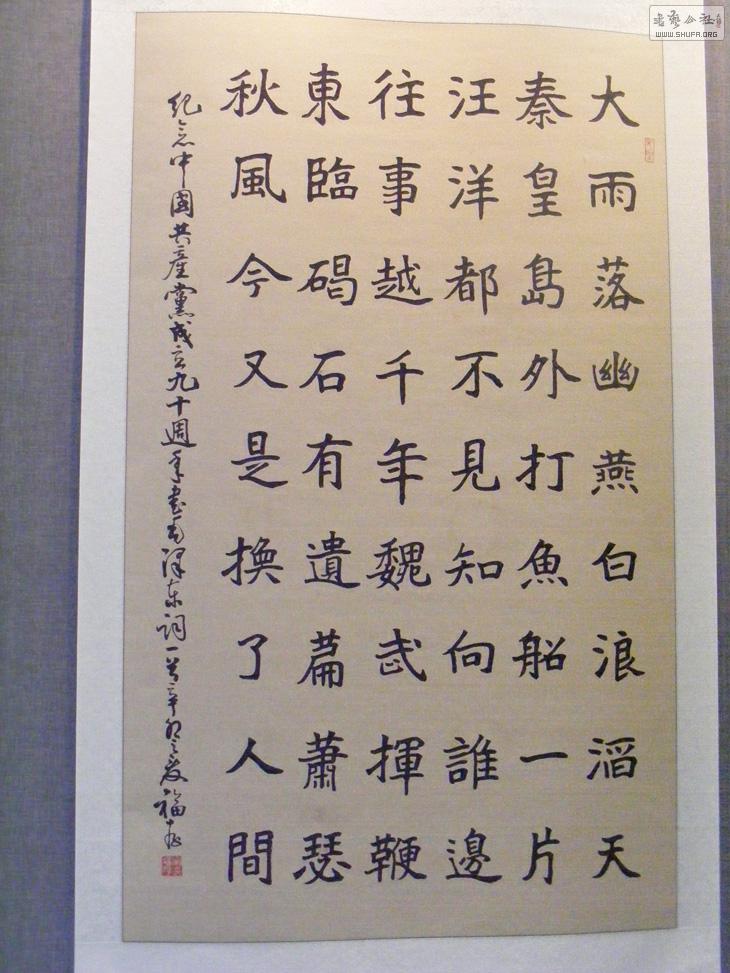 大雨落幽燕白浪滔天
秦皇島外打魚船一片
汪洋都不見知向誰邊
往事越千年魏武揮鞭
東臨碣石有遺篇蕭瑟
秋風今又是換了人間
紀念中國共產黨成立九十週年書毛澤东詞一首辛卯之夏福
書藝公社
WWW.SHUFA.ORG